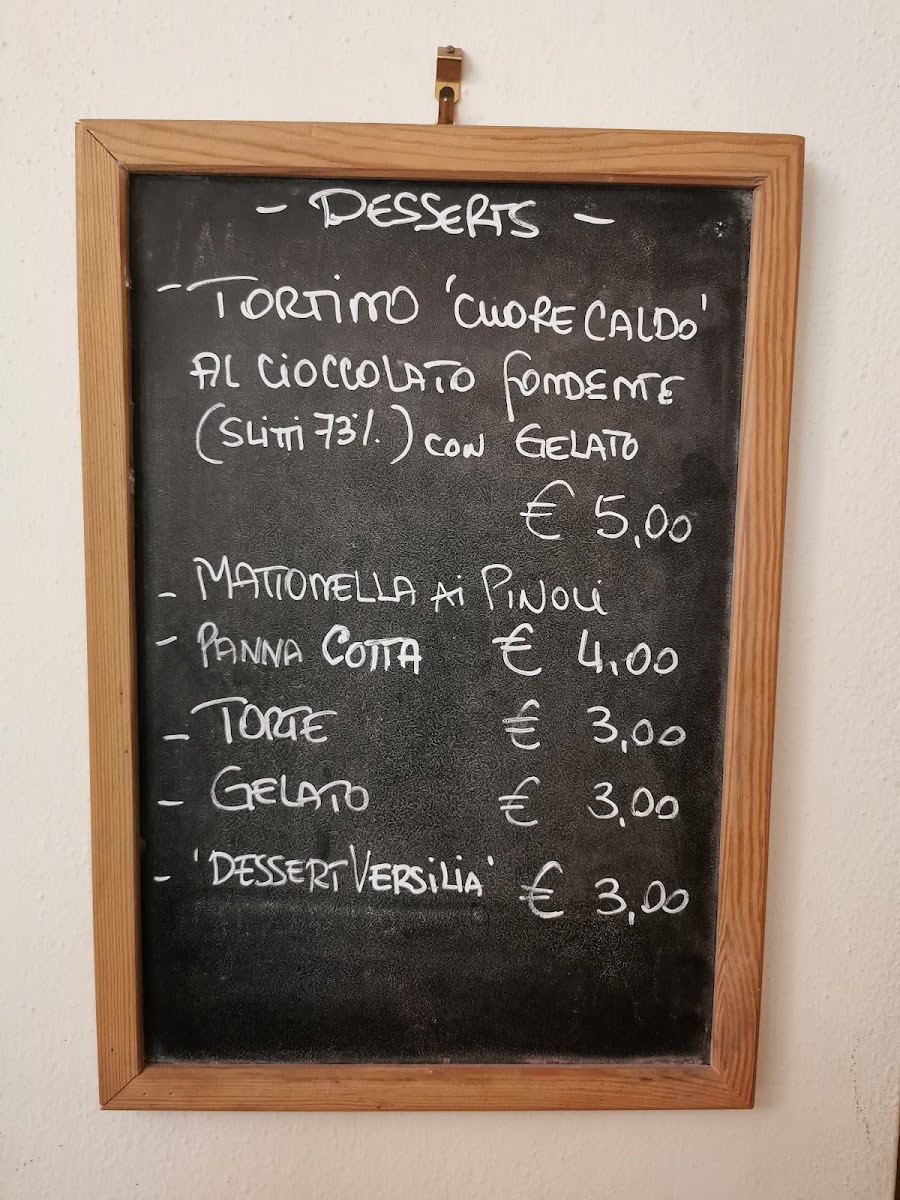 - DESSERTS -
- TORTINO 'CUORE CALDO'
AL CIOCCOLATO fONDENTE
(SLITTI 73%.) CON GELATO
€ 5,00
- MATTONELLA Ai PiNOLi
- PANNA COTTA € 4,00
- TORTE € 3,00
- GELATO € 3,00
- 'DESSERT VERSILIA' € 3,00